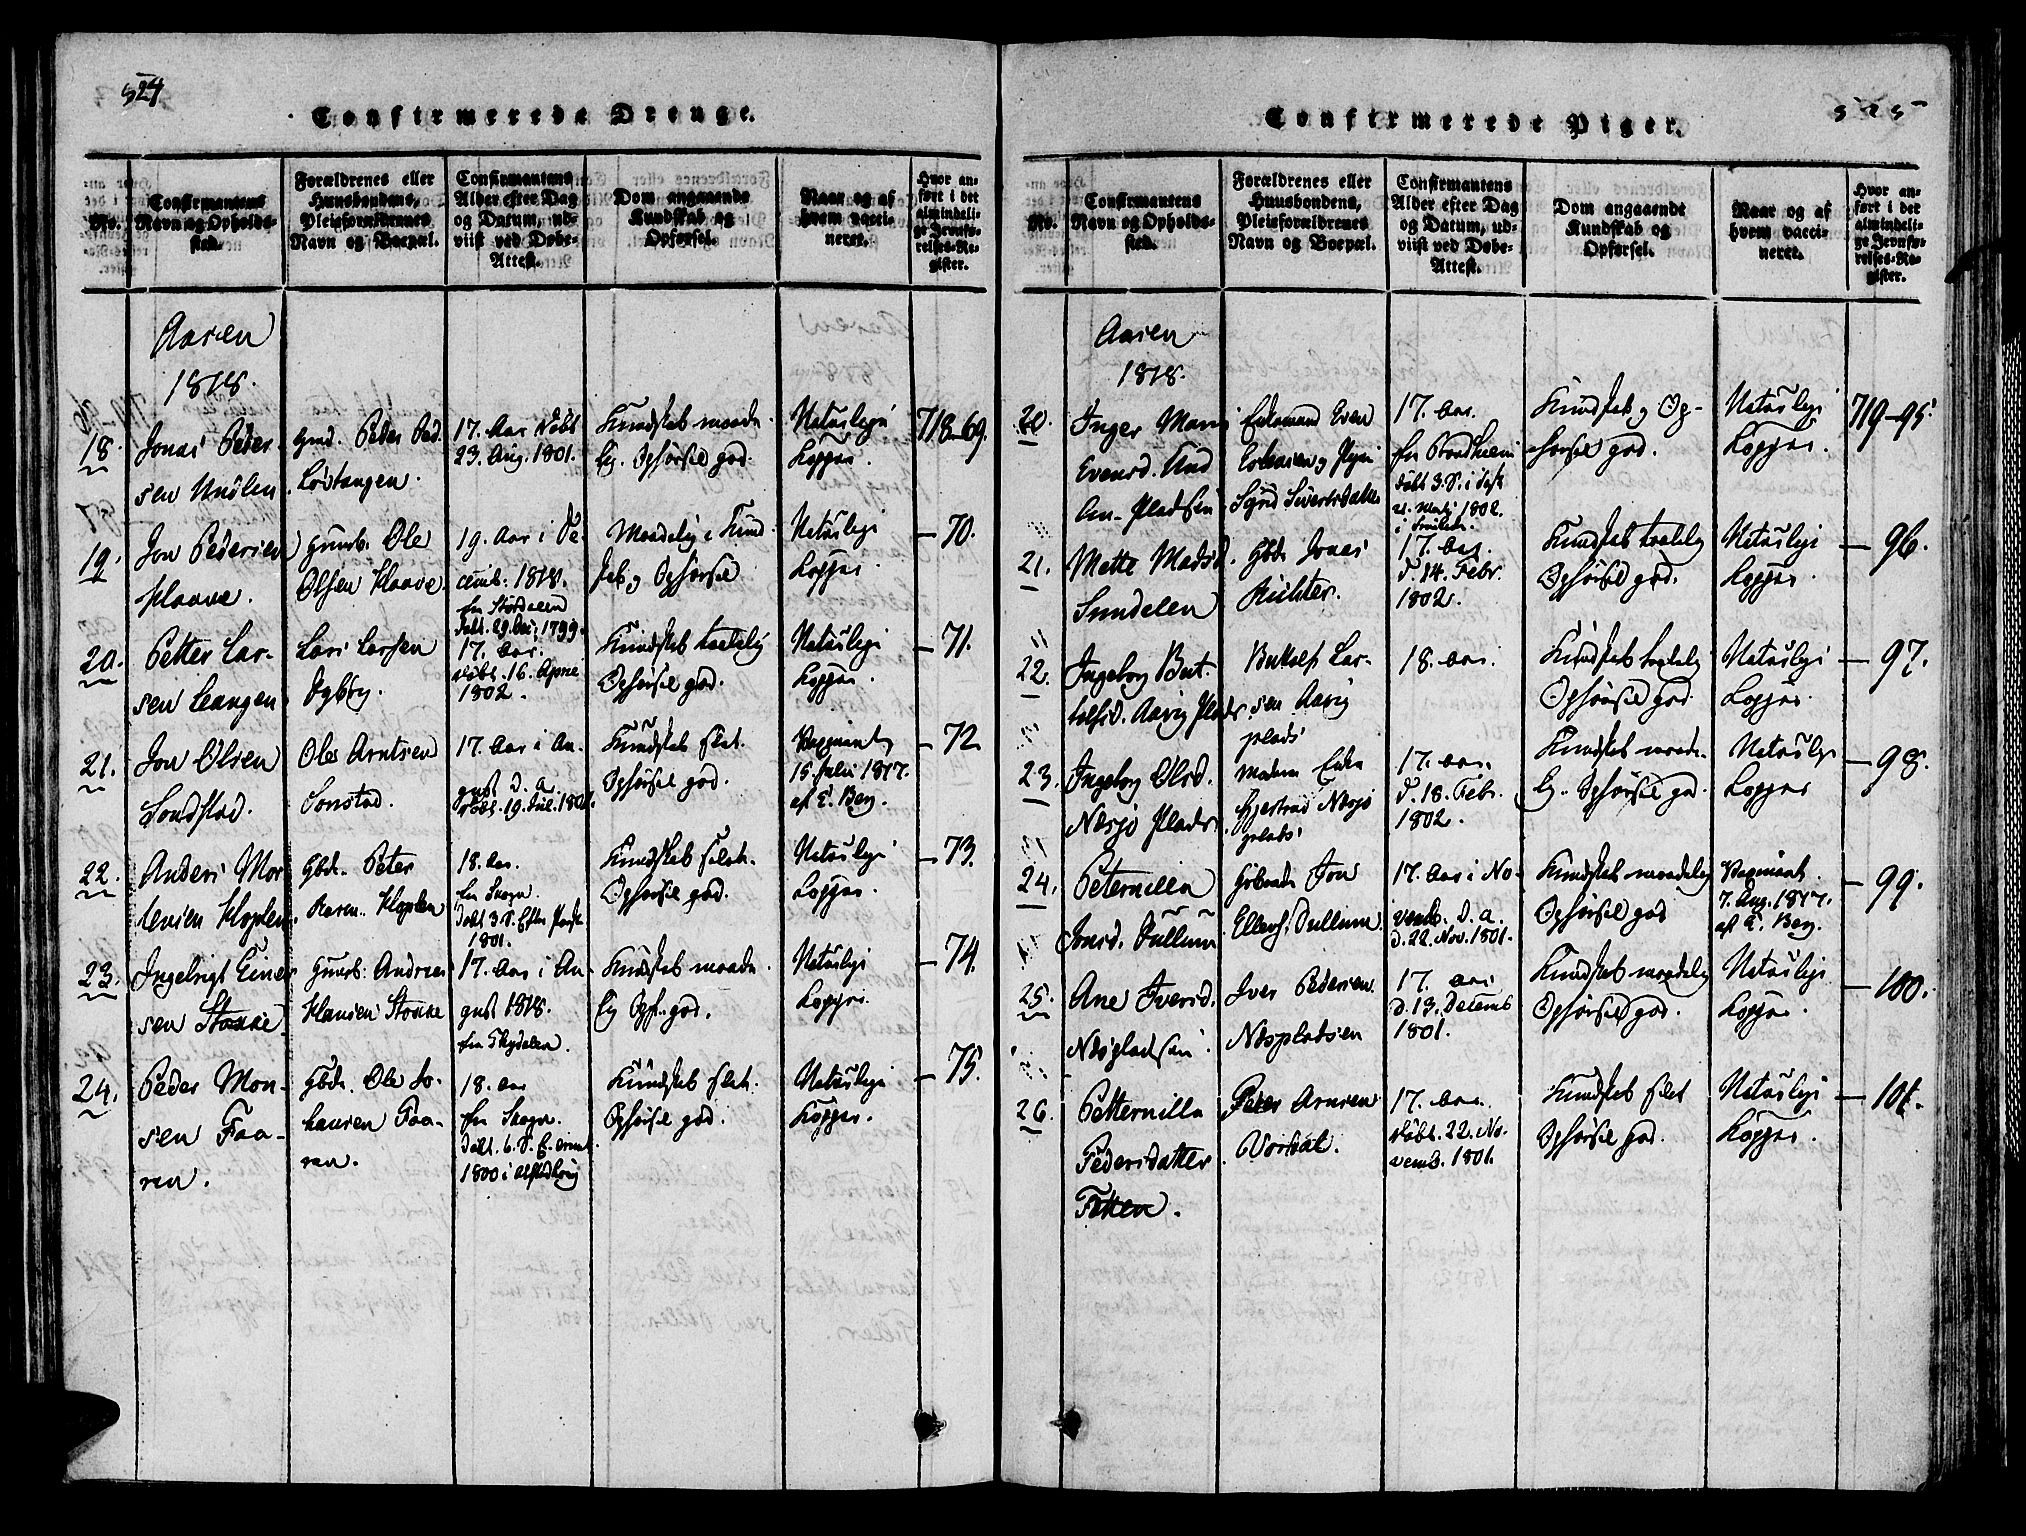 524
Confirmerede Drenge.
No.
Confirmantens
Navn og Opholds-
sted.
Forældrenes eller
Huusbondens,
Pleieforældrenes
Navn og Boepæl.
Confirmantens
Alder efter Dag
og Datum, ud-
viist ved Døbe-
Attest.
Dom angaaende
Kundskab og
Opførsel.
Naar og af
hvem vacci-
neret.
Hvor an-
ført i det
almindeli-
ge Jevnfø-
relses-Re-
gister.
Aaren
1818.
18.
Jonas Peder-
sen Undlen
Gmd. Peder Ped.
Løstangen.
17. Aar Døbt
23. Aug. 1801.
Kundskab maade-
lig. Opførsel god.
Naturlige
Kopper.
718-69.
19.
Jon Pedersen
Haave.
Huusb. Ole
Olsen Haave.
19. Aar i De-
cemb. 1818.
fra Størdalen
Døbt. 29. Dec. 1799.
Maadelig i Kund-
skab og Opførsel
Naturlige
Kopper.
— 70.
20.
Petter Lar-
sen Leangen
Lars Larsen
17. Aar.
Døbt. 16. Apr.
1802.
Kundskab taalelig
Opførsel god.
Naturlige
Kopper.
— 71.
21.
Jon Olsen
Sondstad.
Ole Arntsen
Sonstad.
17. Aar i Au-
gust d. A.
Døbt. 19. Jul. 1801.
Kundskab slet.
Opførsel god.
Vaccineret
15. Julii 1817.
af E. Berg.
— 72
22.
Anders Mor-
tensen Hoplen.
Gbdr. Peter
Aasen. Hoplen
18. Aar.
fra Skogn.
Døbt 3. S. Efter Paask.
1801.
Kundskab slet.
Opførsel god.
Naturlige
Kopper.
— 73.
23.
Ingebrigt Einer-
sen Stokke
Huusb: Andreas
Hansen Stokke
17. Aar i Au-
gust 1818.
fra Skydalen.
Kundskab maade-
lig Opf. god.
Naturlige
Kopper.
— 74.
24.
Peder Mon-
sen Faa-
ren.
Gbdr. Ole Jo-
hansen Faa-
ren.
18. Aar
fra Skogn.
Døbt. 6. S. E.
1800 i Alstadhoug
Kundskab slet.
Opførsel god.
Naturlige
Kopper.
— 75.
525
Confirmerede Piger.
No.
Confirmantens
Navn og Opholds-
sted.
Forældrenes eller
Huusbondens,
Pleieforældrenes
Navn og Boepæl.
Confirmantens
Alder efter Dag
og Datum, ud-
viist ved Døbe-
Attest.
Dom angaaende
Kundskab og
Opførsel.
Naar og af
hvem vacci-
neret.
Hvor an-
ført i det
almindeli-
ge Jevnfø-
relses-Re-
gister.
Aaren
1818.
20.
Inger Marie
Evensd.
Pladsen
Even
og Pige
Sigrid Sivertsdatter
17. Aar.
fra Trondhiem
døbt 3. S. i Fast.
21. Marti 1802.
Kundskab og Op-
førsel god.
Naturlige
Kopper.
719-95.
21.
Mette Madsd.
Sundelen
Gbdr. Jonas
Richter.
17. Aar.
d. 14. Febr.
1802.
Kundskab taalelig
Opførsel god.
Naturlige
Kopper.
— 96.
22.
Ingeborg But-
tolfsd. Aavig Plads
Buttolf Lar-
sen Aavig
plads
18. Aar.
Kundskab taalelig
Opførsel god
Naturlige
Kopper.
— 97.
23.
Ingeborg Olsd.
Næsjo Plads.
Moderen Enke
Gjertrud Næsjo
plads
17. Aar.
d. 18. Febr.
1802.
Kundskab maade-
lig. Opførsel god.
Naturlige
Kopper
— 98.
24.
Peternilla
Jonsd. Tullum
Gaardmand Jon
Ellevs. Tullum.
17. Aar i No-
vemb. d. a.
d. 22. Nov. 1801.
Kundskab maadelig
Opførsel god
Vaccineret
7. Aug. 1817.
af E. Berg.
— 99.
25.
Ane Iversd.
Næspladsen.
Iver Pedersen
Næspladsen
17. Aar
d. 13. Decemb
1801.
Kundskab maadelig
Opførsel god.
Naturlige
Kopper.
— 100.
26.
Petternilla
Pedersdatter
Fætten.
Peter Arnsen
Vordal.
17. Aar.
Døbt. 22. No-
vemb. 1801.
Kundskab slet
Opførsel god.
Naturlige
Kopper.
— 101.